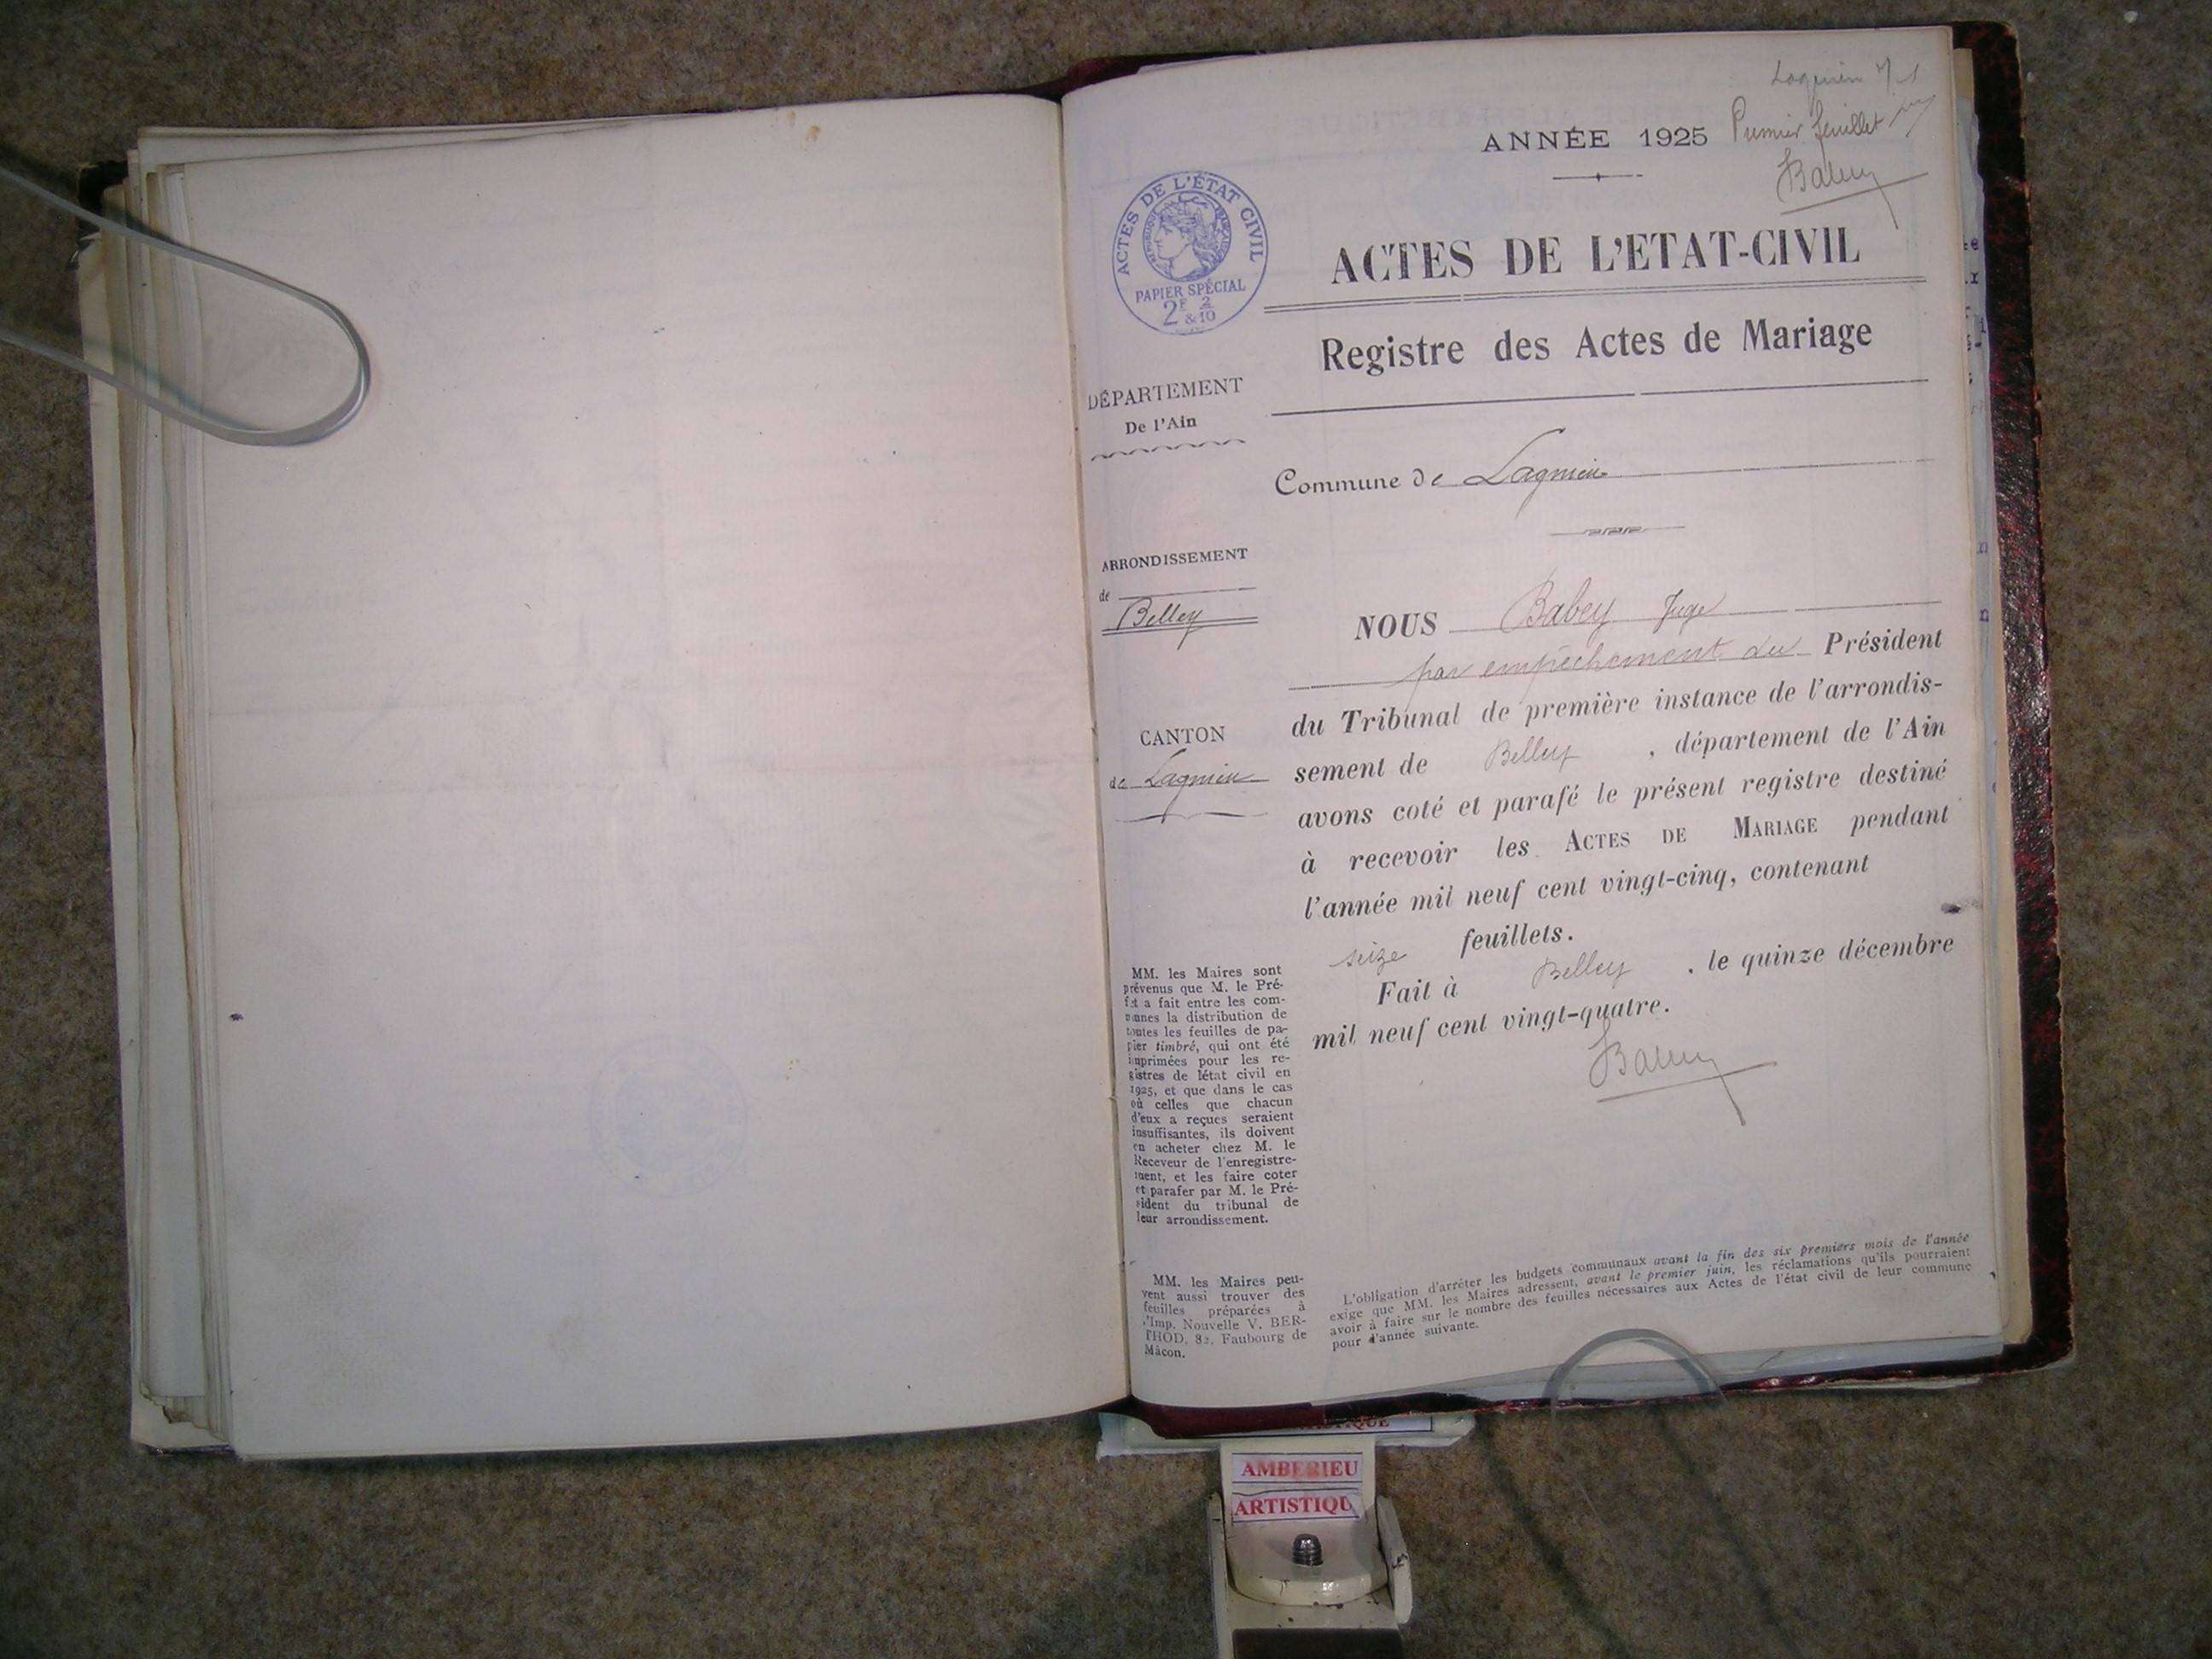 Lagnieu M 1
ANNÉE 1925
Premier feuillet
Babey
ACTES DE L'ÉTAT CIVIL
RÉPUBLIQUE FRANÇAISE
PAPIER SPÉCIAL
2F & 2/10
ACTES DE L'ETAT-CIVIL
Registre des Actes de Mariage
DÉPARTEMENT
De l'Ain
Commune de Lagnieu
ARRONDISSEMENT
de
Belley
CANTON
de Lagnieu
NOUS Babey Juge
par empêchement du Président
du Tribunal de première instance de l'arrondis-
sement de Belley , département de l'Ain
avons coté et parafé le présent registre destiné
à recevoir les ACTES DE MARIAGE pendant
l'année mil neuf cent vingt-cinq, contenant
seize feuillets.
Fait à Belley , le quinze décembre
mil neuf cent vingt-quatre.
Babey
MM. les Maires sont
prévenus que M. le Pré-
fet a fait entre les com-
munes la distribution de
toutes les feuilles de pa-
pier timbré, qui ont été
imprimées pour les re-
gistres de létat civil en
1925, et que dans le cas
où celles que chacun
d'eux a reçues seraient
insuffisantes, ils doivent
en acheter chez M. le
Receveur de l'enregistre-
ment, et les faire coter
et parafer par M. le Pré-
sident du tribunal de
leur arrondissement.
MM. les Maires peu-
vent aussi trouver des
feuilles préparées à
l'Imp. Nouvelle V. BER-
THOD, 82, Faubourg de
Mâcon.
L'obligation d'arrêter les budgets communaux avant la fin des six premiers mois de l'année
exige que MM. les Maires adressent, avant le premier juin, les réclamations qu'ils pourraient
avoir à faire sur le nombre des feuilles nécessaires aux Actes de l'état civil de leur commune
pour d'année suivante.
AMBERIEU
ARTISTIQU